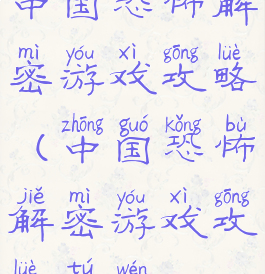 中国恐怖解
mì yóu xì gōng lüè
密游戏攻略
zhōng guó kǒng bù
（中国恐怖
jiě mì yóu xì gōng
解密游戏攻
lüè tú wén